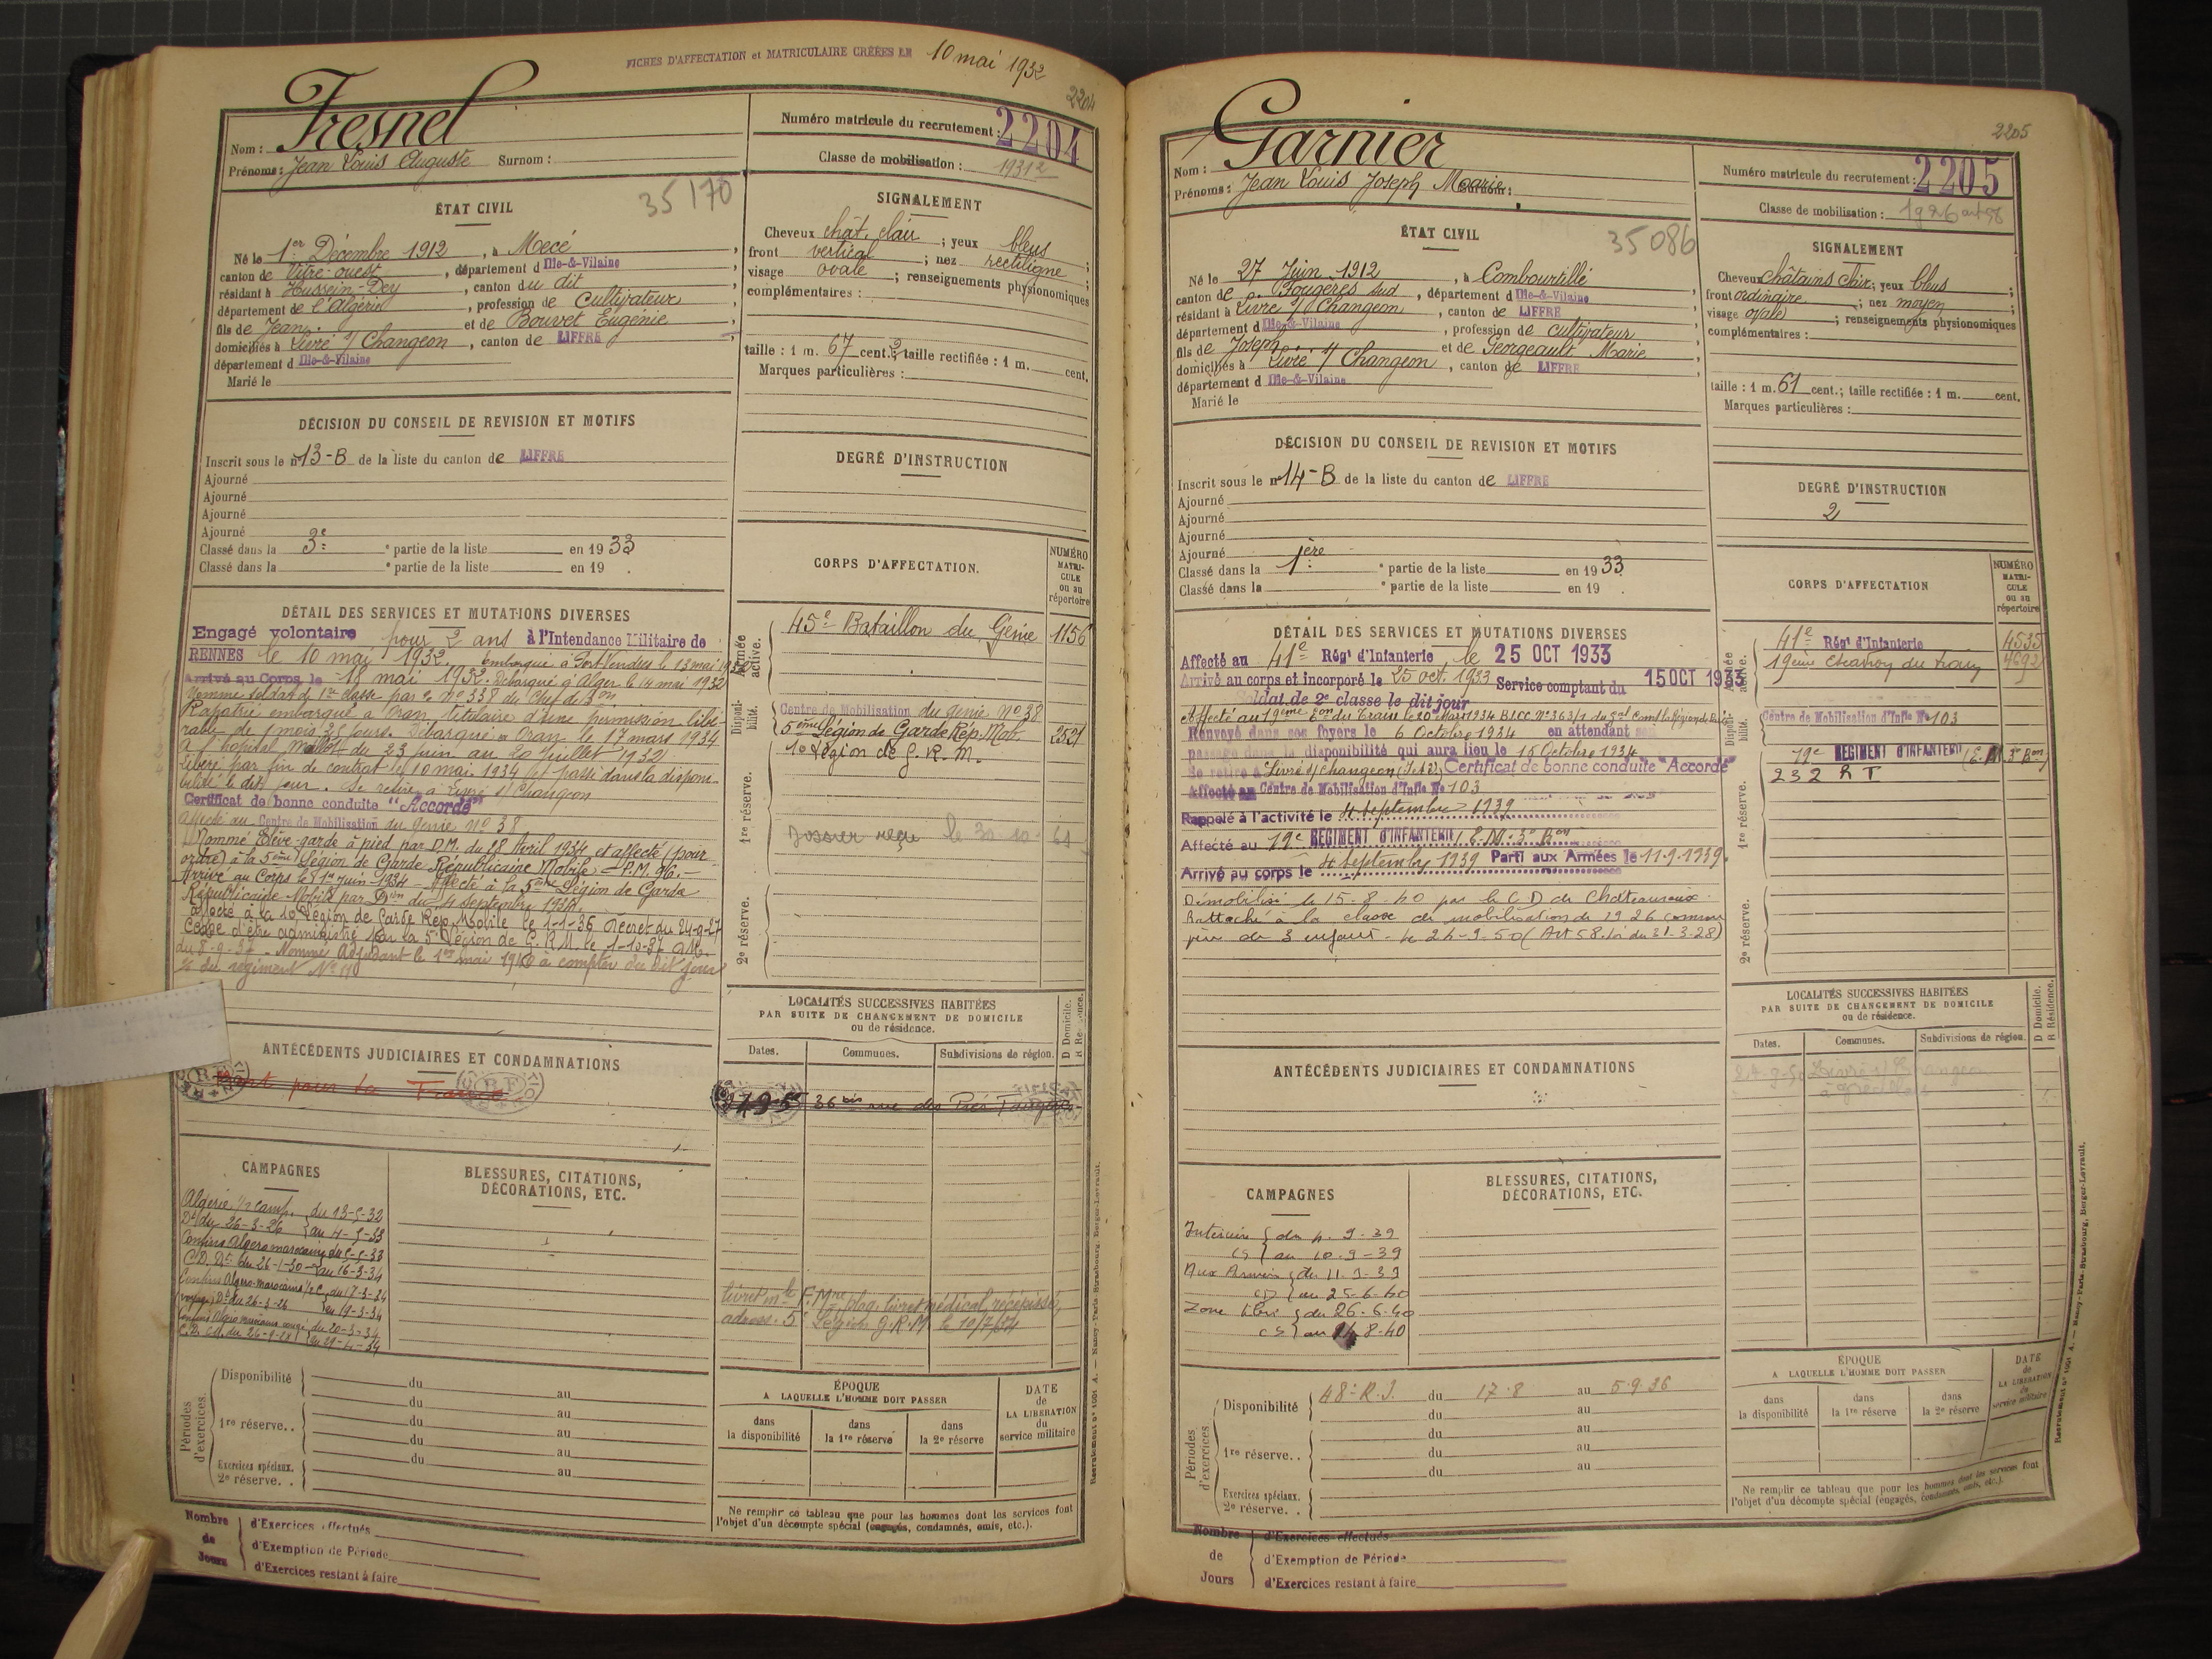 FICHES D'AFFECTATION et MATRICULAIRE CRÉÉES LE 10 mai 1932
2204
Nom : Fresnel
Prénoms : Jean Louis Auguste Surnom :
Numéro matricule du recrutement : 2204
Classe de mobilisation : 1931
ÉTAT CIVIL
35170
Né le 1er Décembre 1912, à Mecé,
canton de Vitré-ouest, département d Ille-&-Vilaine
résidant à Hussein-Dey, canton du dit
département de l'Algérie, profession de Cultivateur
fils de Jean et de Bouvet Eugénie
domiciliés à Livré s/ Changeon, canton de LIFFRÉ
département d Ille-&-Vilaine
Marié le
SIGNALEMENT
Cheveux chât. clair ; yeux bleus ;
front vertical ; nez rectiligne ;
visage ovale ; renseignements physionomiques
complémentaires :
taille : 1 m. 67 cent. 2 ; taille rectifiée : 1 m. cent.
Marques particulières :
DÉCISION DU CONSEIL DE REVISION ET MOTIFS
Inscrit sous le n° 13-B de la liste du canton de LIFFRÉ
Ajourné
Ajourné
Ajourné
Ajourné
Classé dans la 3e partie de la liste en 1933
Classé dans la e partie de la liste en 19 .
DEGRÉ D'INSTRUCTION
DÉTAIL DES SERVICES ET MUTATIONS DIVERSES
Engagé volontaire pour 2 ans à l'Intendance Militaire de
RENNES le 10 mai 1932. embarqué à Port Vendres le 13 mai 1932
Arrivé au Corps le 18 mai 1932. Débarqué à Alger le 14 mai 1932
Nommé soldat de 1re classe par o. n° 338 du Chef de Bon
Rapatrié embarqué à Oran, titulaire d'une permission libé-
rable de 1 mois 25 jours. Débarqué Oran le 17 mars 1934
A l'hopital Maillot du 23 juin au 20 Juillet 1932
Libéré par fin de contrat le 10 mai 1934 et passé dans la disponi-
bilité le dit jour. Se retire à Livré s/ Changeon
Certificat de bonne conduite "Accordé"
Affecté au Centre de Mobilisation du Génie n° 38
Nommé Elève-garde à pied par D.M. du 18 Avril 1934 et affecté (pour
ordre) à la 5ème Légion de Garde Républicaine Mobile - P.M. 96.-
Arrivé au Corps le 1er Juin 1934 - Affecté à la 5ème Légion de Garde
Républicaine Mobile par Don du 4 Septembre 1934.
Affecté à la 10 Légion de Garde Rép. Mobile le 1-1-36 Décret du 24-9-27
Cesse d'être administré par la 5e Légion de G.R.M. le 1-10-37
du 8-9-37 - Nommé Adjudant le 1er mai 1940 à compter du dit jour
% du régiment N° 110
CORPS D'AFFECTATION.
NUMÉRO MATRI-CULE ou au répertoire
Armée active.
45e Bataillon du Génie 1156
Disponibilité.
Centre de Mobilisation du génie N° 38
5ème Légion de Garde Rép. Mob. 2521
10 Légion de G.R.M.
1re réserve.
Dossier reçu le 30-10-61
2e réserve.
LOCALITÉS SUCCESSIVES HABITÉES
PAR SUITE DE CHANGEMENT DE DOMICILE
ou de résidence.
Dates. Communes. Subdivisions de région. D Domicile. R Résidence.
36 bis rue des Prés Fougères
ANTÉCÉDENTS JUDICIAIRES ET CONDAMNATIONS
Mort pour la France
CAMPAGNES
Algérie 1/2 camp. du 13-5-32
Dt du 26-3-26 au 4-5-33
Confins Algéro marocains du 5-5-33
C.D. Dt du 26-1-30 au 16-3-34
Confins Algéro-marocains 1/2 C. du 17-3-34
(voyage) Dt du 26-3-26 au 19-3-34
du 20-3-34
au 29-4-34
BLESSURES, CITATIONS,
DÉCORATIONS, ETC.
livret mle F. Mre, plaq. livret médical, récépissé,
adress. 5e Légion G.R.M le 10/7/34
Périodes d'exercices
Disponibilité du au
du au
1re réserve.. du au
du au
du au
Exercices spéciaux.
2e réserve. .
ÉPOQUE
A LAQUELLE L'HOMME DOIT PASSER
dans la disponibilité dans la 1re réserve dans la 2e réserve
DATE de LA LIBÉRATION du service militaire
Ne remplir ce tableau que pour les hommes dont les services font
l'objet d'un décompte spécial (engagés, condamnés, omis, etc.).
Nombre de Jours
d'Exercices effectués
d'Exemption de Période
d'Exercices restant à faire
2205
Nom : Garnier
Prénoms : Jean Louis Joseph Marie Surnom :
Numéro matricule du recrutement : 2205
Classe de mobilisation : 1926 art 58
ÉTAT CIVIL
35086
Né le 27 Juin 1912, à Combourtillé
canton de Fougères sud, département d Ille-&-Vilaine
résidant à Livré s/ Changeon, canton de LIFFRÉ
département d Ille-&-Vilaine, profession de cultivateur
fils de Joseph et de Georgeault Marie
domiciliés à Livré s/ Changeon, canton de LIFFRÉ
département d Ille-&-Vilaine
Marié le
SIGNALEMENT
Cheveux châtains clair ; yeux bleus ;
front ordinaire ; nez moyen ;
visage ovale ; renseignements physionomiques
complémentaires :
taille : 1 m. 61 cent. ; taille rectifiée : 1 m. cent.
Marques particulières :
DÉCISION DU CONSEIL DE REVISION ET MOTIFS
Inscrit sous le n° 14-B de la liste du canton de LIFFRÉ
Ajourné
Ajourné
Ajourné
Ajourné
Classé dans la 1ère partie de la liste en 1933
Classé dans la e partie de la liste en 19 .
DEGRÉ D'INSTRUCTION
2
DÉTAIL DES SERVICES ET MUTATIONS DIVERSES
Affecté au 41e Régt d'Infanterie le 25 OCT 1933
Arrivé au corps et incorporé le 25 oct. 1933 Service comptant du 15 OCT 1933
Soldat de 2e classe le dit jour
Affecté au 19ème Eon du Train le 20 Mars 1934
Renvoyé dans ses foyers le 6 Octobre 1934 en attendant son
passage dans la disponibilité qui aura lieu le 15 Octobre 1934
Se retire à Livré s/ Changeon (I et V) Certificat de bonne conduite "Accordé"
Affecté au Centre de Mobilisation d'Infie N° 103
Rappelé à l'activité le 4 Septembre 1939
Affecté au 19e REGIMENT D'INFANTERIE E.M. 3e Bon
Arrivé au corps le 4 Septembre 1939 Parti aux Armées le 11.9.1939
Démobilisé le 15-8-40 par le C D de Chateauroux.
Rattaché à la classe de mobilisation de 1926 comme
père de 3 enfants - le 24-9-50 (Art 58. loi du 31-3-28)
CORPS D'AFFECTATION
NUMÉRO MATRI-CULE ou au répertoire
Armée active.
41e Régt d'Infanterie 4535
19ème Escadron du train 4692
Disponibilité.
Centre de Mobilisation d'Infie N° 103
19e REGIMENT D'INFANTERIE (E.M. 3e Bon)
232 R T
1re réserve.
2e réserve.
LOCALITÉS SUCCESSIVES HABITÉES
PAR SUITE DE CHANGEMENT DE DOMICILE
ou de résidence.
Dates. Communes. Subdivisions de région. D Domicile. R Résidence.
24-9-50 Livré s/ Changeon
ANTÉCÉDENTS JUDICIAIRES ET CONDAMNATIONS
CAMPAGNES
Intérieur du 4.9-39
CS au 10.9-39
Aux Armées du 11.9-39
CD au 25-6-40
Zone libre du 26-6-40
CS au 8-40
BLESSURES, CITATIONS,
DÉCORATIONS, ETC.
Périodes d'exercices
Disponibilité 48e R.I. du 17.8 au 5.9.36
du au
1re réserve.. du au
du au
du au
Exercices spéciaux.
2e réserve. .
ÉPOQUE
A LAQUELLE L'HOMME DOIT PASSER
dans la disponibilité dans la 1re réserve dans la 2e réserve
DATE de LA LIBÉRATION du service militaire
Ne remplir ce tableau que pour les hommes dont les services font
l'objet d'un décompte spécial (engagés, condamnés, omis, etc.).
Nombre de Jours
d'Exercices effectués
d'Exemption de Période
d'Exercices restant à faire